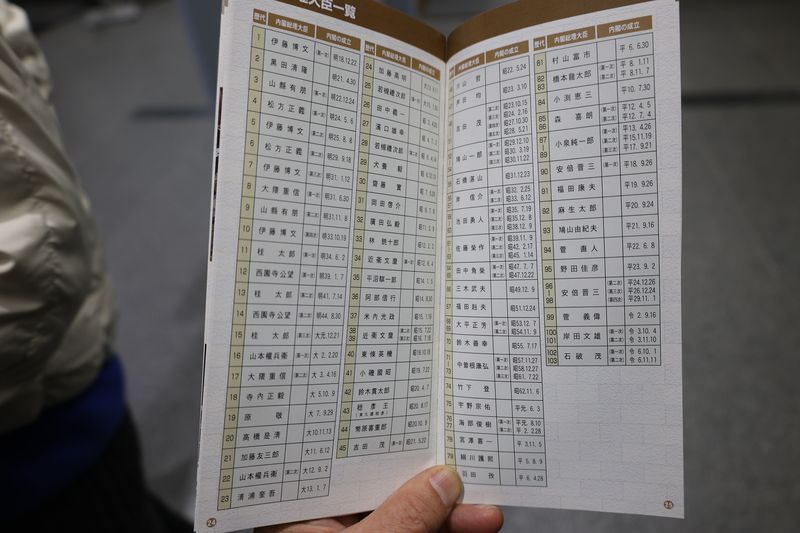 大臣一覧
歴代 内閣総理大臣 内閣の成立
1 伊藤博文 (第一次) 明18.12.22
2 黒田清隆 明21.4.30
3 山縣有朋 (第一次) 明22.12.24
4 松方正義 (第一次) 明24.5.6
5 伊藤博文 (第二次) 明25.8.8
6 松方正義 (第二次) 明29.9.18
7 伊藤博文 (第三次) 明31.1.12
8 大隈重信 (第一次) 明31.6.30
9 山縣有朋 (第二次) 明31.11.8
10 伊藤博文 (第四次) 明33.10.19
11 桂太郎 (第一次) 明34.6.2
12 西園寺公望 (第一次) 明39.1.7
13 桂太郎 (第二次) 明41.7.14
14 西園寺公望 (第二次) 明44.8.30
15 桂太郎 (第三次) 大元.12.21
16 山本權兵衛 (第一次) 大2.2.20
17 大隈重信 (第二次) 大3.4.16
18 寺内正毅 大5.10.9
19 原敬 大7.9.29
20 高橋是清 大10.11.13
21 加藤友三郎 大11.6.12
22 山本權兵衛 (第二次) 大12.9.2
23 清浦奎吾 大13.1.7
24
歴代 内閣総理大臣 内閣の成立
24 加藤高明
25 若槻禮次郎 (第一次)
26 田中義一
27 濱口雄幸
28 若槻禮次郎 (第二次)
29 犬養毅
30 齋藤實
31 岡田啓介
32 廣田弘毅
33 林銑十郎
34 近衞文麿 (第一次)
35 平沼騏一郎
36 阿部信行
37 米内光政
38 39 近衞文麿 (第二次) (第三次)
40 東條英機
41 小磯國昭
42 鈴木貫太郎 昭20.4.7
43 稔彦王 (東久邇宮) 昭20.8.17
44 幣原喜重郎 昭20.10.9
45 吉田茂 (第一次) 昭21.5.22
内閣総理大臣 内閣の成立
片山哲 昭22.5.24
芦田均 昭23.3.10
吉田茂 (第二次) 昭23.10.15 (第三次) 昭24.2.16 (第四次) 昭27.10.30 (第五次) 昭28.5.21
鳩山一郎 (第一次) 昭29.12.10 (第二次) 昭30.3.19 (第三次) 昭30.11.22
石橋湛山 昭31.12.23
岸信介 (第一次) 昭32.2.25 (第二次) 昭33.6.12
池田勇人 (第一次) 昭35.7.19 (第二次) 昭35.12.8 (第三次) 昭38.12.9
佐藤榮作 (第一次) 昭39.11.9 (第二次) 昭42.2.17 (第三次) 昭45.1.14
田中角榮 (第一次) 昭47.7.7 (第二次) 昭47.12.22
三木武夫 昭49.12.9
福田赳夫 昭51.12.24
大平正芳 (第一次) 昭53.12.7 (第二次) 昭54.11.9
70 鈴木善幸 昭55.7.17
71 72 73 中曽根康弘 (第一次) 昭57.11.27 (第二次) 昭58.12.27 (第三次) 昭61.7.22
74 竹下登 昭62.11.6
75 宇野宗佑 平元.6.3
76 77 海部俊樹 (第一次) 平元.8.10 (第二次) 平2.2.28
78 宮澤喜一 平3.11.5
79 細川護熙 平5.8.9
羽田孜 平6.4.28
歴代 内閣総理大臣 内閣の成立
81 村山富市 平6.6.30
82 83 橋本龍太郎 (第一次) 平8.1.11 (第二次) 平8.11.7
84 小渕恵三 平10.7.30
85 86 森喜朗 (第一次) 平12.4.5 (第二次) 平12.7.4
87 88 89 小泉純一郎 (第一次) 平13.4.26 (第二次) 平15.11.19 (第三次) 平17.9.21
90 安倍晋三 (第一次) 平18.9.26
91 福田康夫 平19.9.26
92 麻生太郎 平20.9.24
93 鳩山由紀夫 平21.9.16
94 菅直人 平22.6.8
95 野田佳彦 平23.9.2
96 98 安倍晋三 (第二次) 平24.12.26 (第三次) 平26.12.24 (第四次) 平29.11.1
99 菅義偉 令2.9.16
100 101 岸田文雄 (第一次) 令3.10.4 (第二次) 令3.11.10
102 103 石破茂 (第一次) 令6.10.1 (第二次) 令6.11.11
25